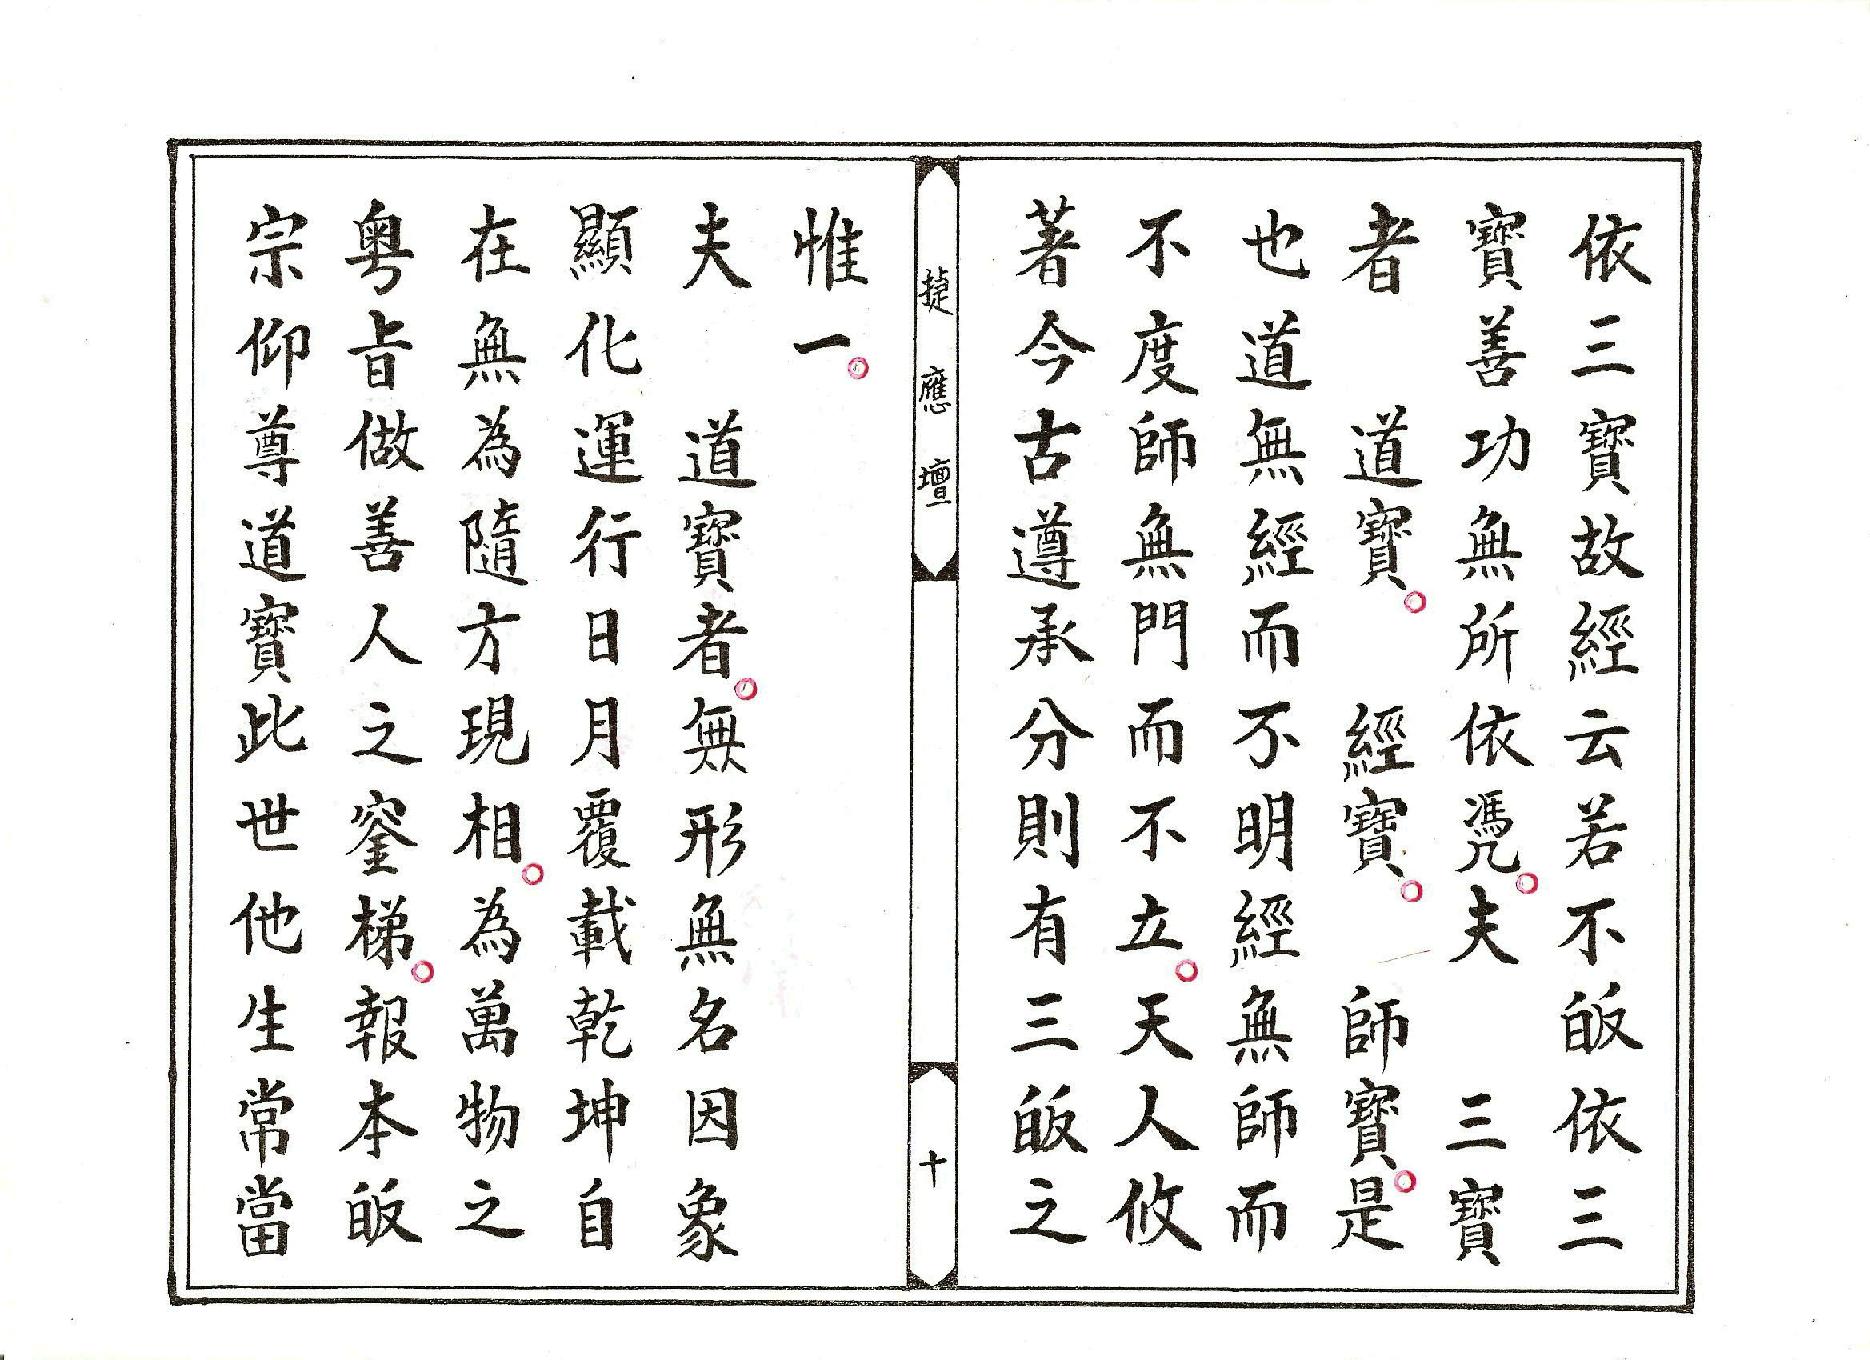 依三寶故經云若不皈依三
寶善功無所依憑夫　三寶
者　道寶。　經寶。　師寶。是
也道無經而不明經無師而
不度師無門而不立。天人攸
著今古遵承分則有三皈之
捷應壇
十
惟一。
夫　道寶者。無形無名因象
顯化運行日月覆載乾坤自
在無為隨方現相。為萬物之
粵旨做善人之梯。報本皈
宗仰尊道寶此世他生常當